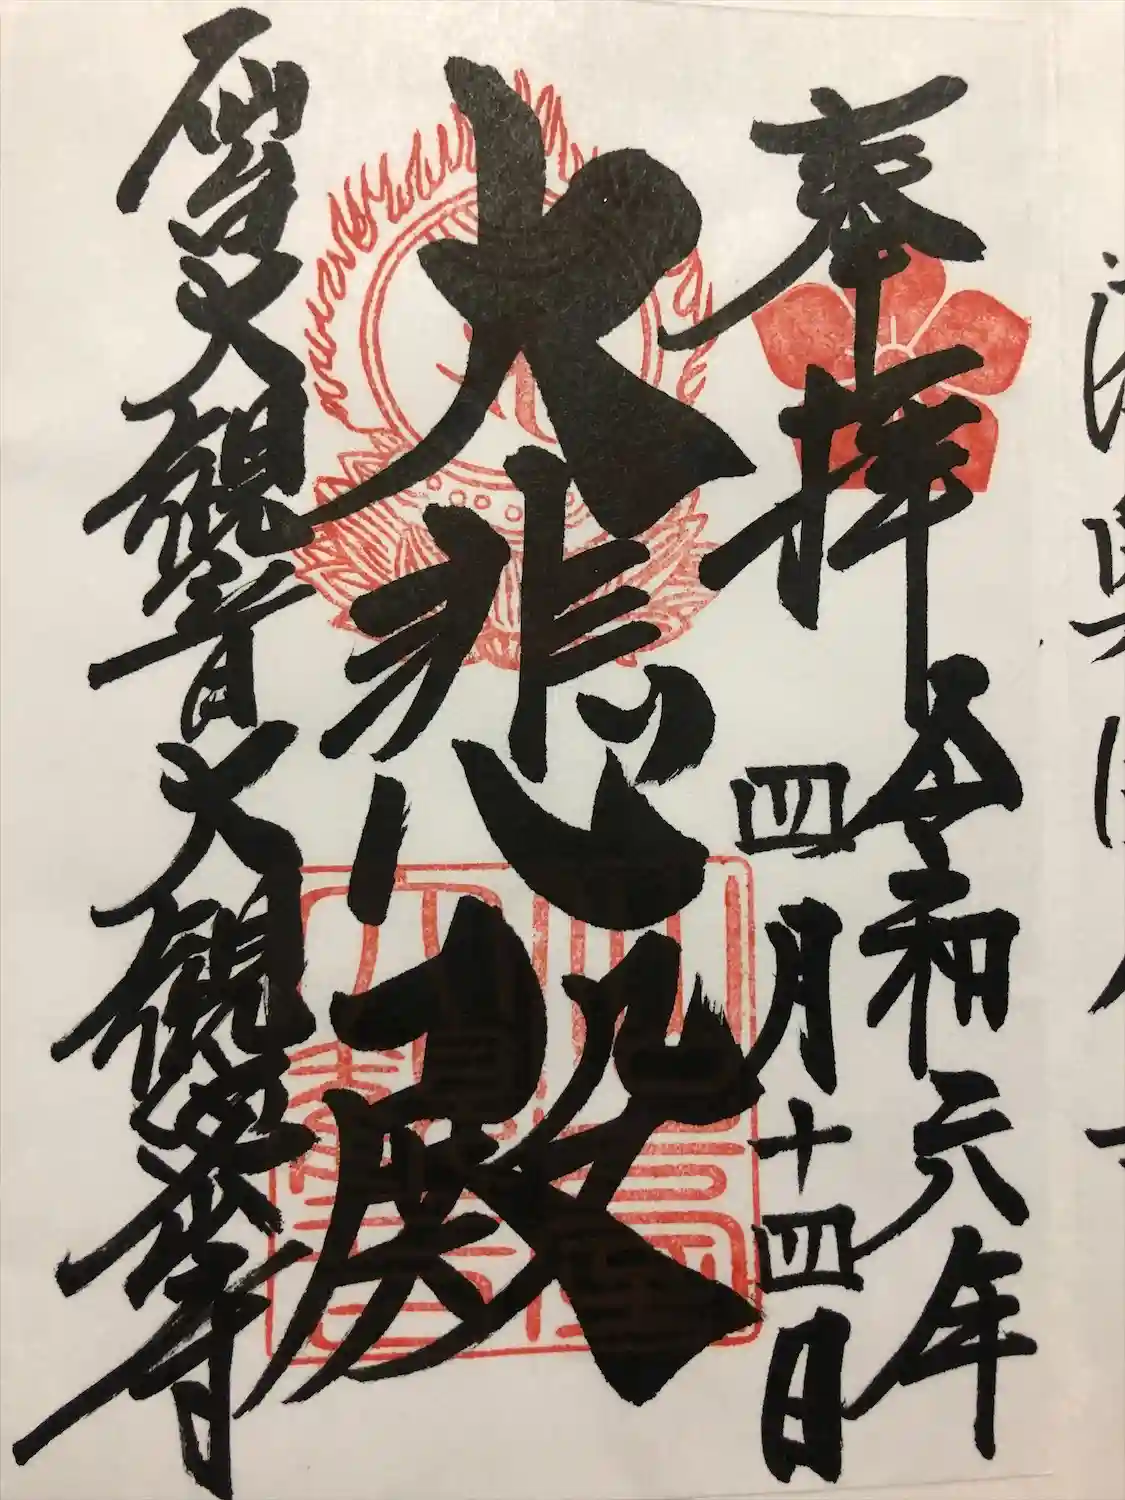 奉拝
令和六年
四月十四日
大悲殿
仙台大観音大観密寺